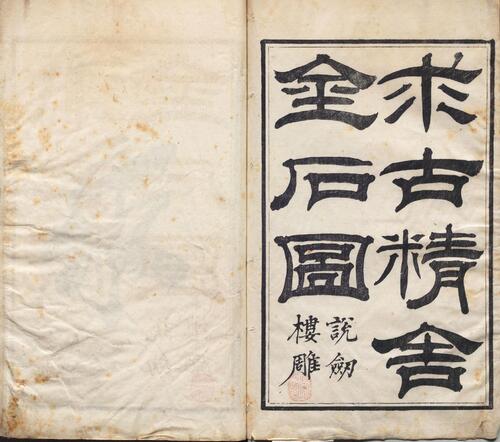 求古精舎
金石圖
說劒
樓雕